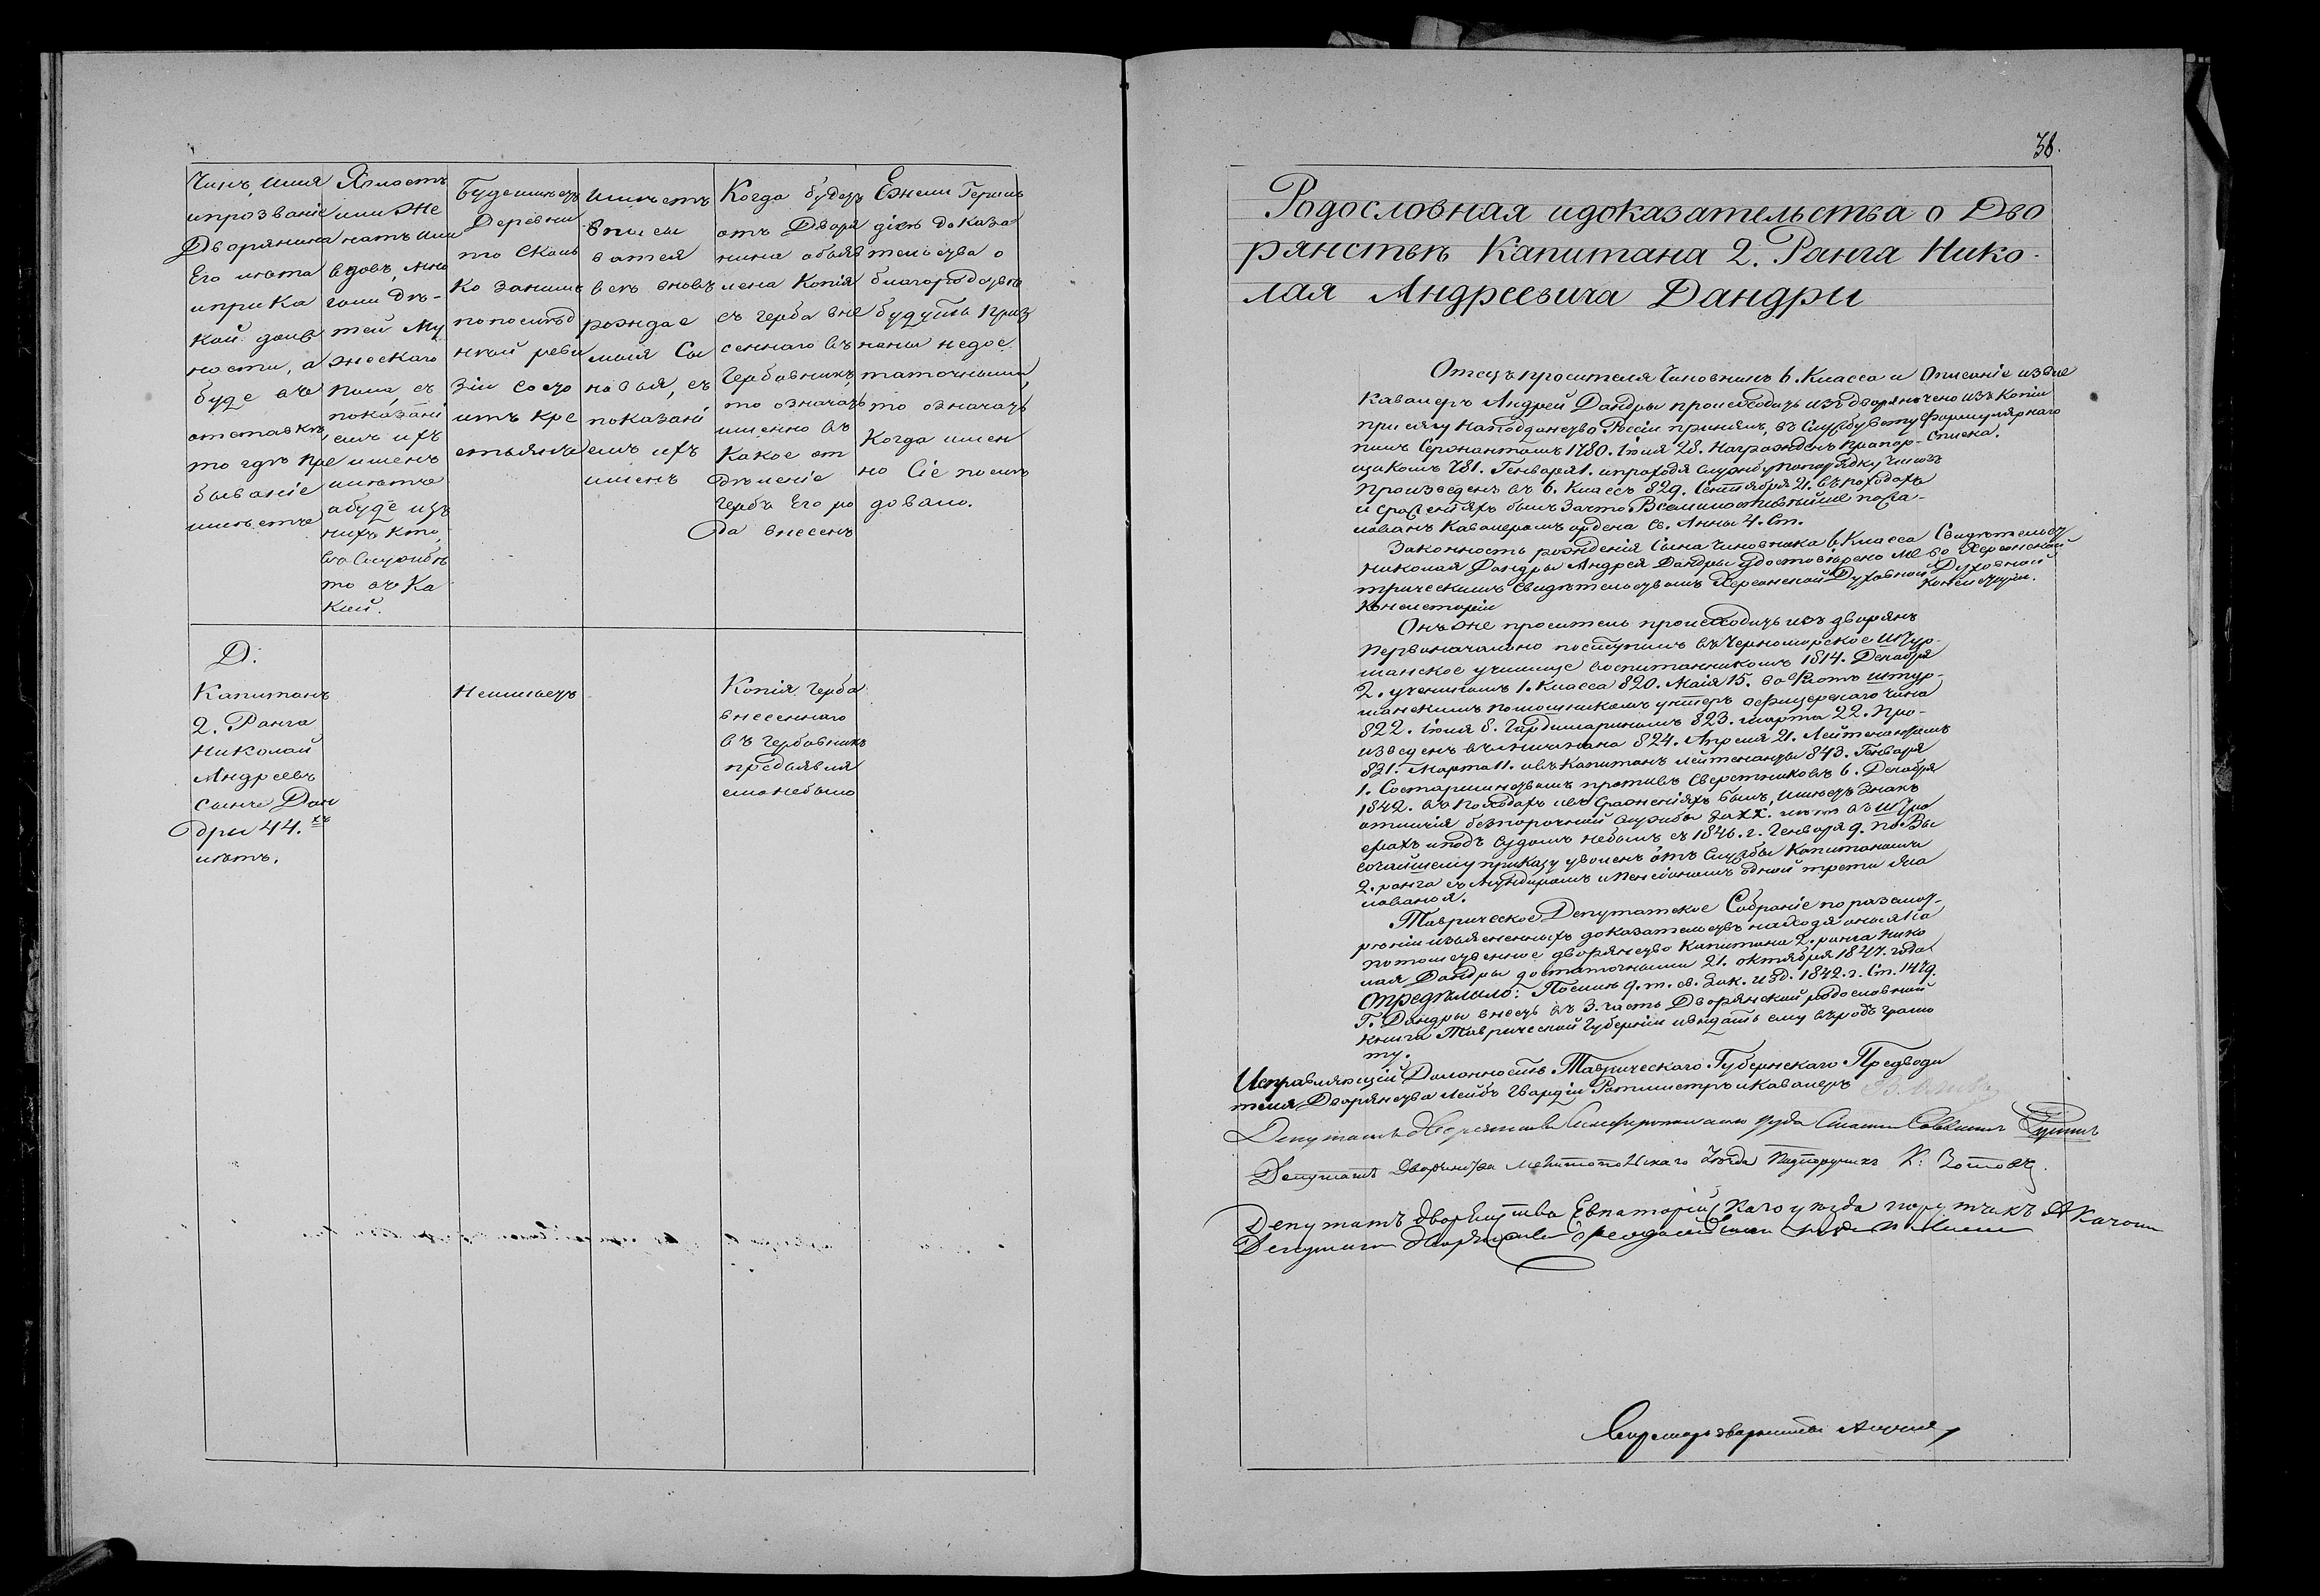 Чинъ, имя
ипрозваніе
Дворянина
Его лѣта
иприка
кой долж
ности, а
буде въ
отставкѣ,
то гдѣ пре
бываніе
имѣетъ
Холостъ
или же
натъ или
вдовъ, мно
голи дѣ-
тей му
жескаго
пола, съ
показані
емъ ихъ
именъ
илѣта
абуде изъ
нихъ кто,
въ службѣ
то въ ка
кой.
Буде имѣетъ
Деревни
то сколь
ко занимъ
попослѣд
ней реви
зіи состо
итъ кре
стьянъ
Имѣетъ
вписы
ватся
всѣ вновь
рождае
мыя сы
новья, съ
показані
емъ ихъ
именъ
Когда будетъ
отъ Дворя
нина объяв
лена Копія
съ герба вне
сеннаго въ
Гербовникъ,
то означать
именно въ
какое от
дѣленіе
гербъ Его ро
да внесенъ
Ежели Герол
діею доказа
тельства о
благородствѣ
будутъ приз
наны недос
таточными,
то означать
когда имен
но сіе послѣ
довало.
Д.
Капитанъ
2. Ранга
Николай
Андреевъ
сынъ Дан
дри 44.хъ
лѣтъ.
Неимѣетъ
Копія герба
внесеннаго
въ гербовникъ
предъявля
емо небыло
38.
Родословная идоказательства о Дво
рянствѣ Капитана 2. Ранга Нико-
лая Андреевича Дандри
Отецъ просителя Чиновникъ 6. Класса и
Кавалеръ Андрей Дандри происходитъ изъ дворянъ
присягу наподданство Россіи принялъ, въ Службу всту
пилъ Сержантомъ 1780. Іюля 28. Награжденъ Прапор-
щикомъ 781. Генваря 1. ипроходя службу попорядку чиновъ
Произведенъ въ 6. Классъ 829. Сентября 21. въ походахъ
и сраженіяхъ былъ Зачто Всемилостивѣйше пожа-
лованъ Кавалеромъ ордена Св. Анны 4. Ст.
Описаніе извле
чено изъ Копіи
Формулярнаго
Списка.
Законность рожденія Сына Чиновника 6 Класса
Николая Дандри Андрея Дандри удостовѣрено Ме
трическимъ Свидѣтельствомъ Херсонской Духовной
Консисторіи
Свидѣтельст
во Херсонской
Духовной
Консисторіи.
Онъ же проситель происходитъ изъ дворянъ
Первоначально поступилъ въ Черноморское Штур-
манское училище воспитанникомъ 1814. Декабря
2. ученикомъ 1. Класса 820. Маія 15. во Флотъ штур-
манскимъ помошникомъ унтеръ офицерскаго чина
822. Іюля 8. Гардимариномъ 823. марта 22. Про-
изведенъ въ Мичмана 824. Апреля 21. Лейтенантомъ
831. Марта 11. ивъ Капитанъ Лейтенанты 843. Генваря
1. Состаршинствомъ противъ Сверстниковъ 6. Декабря
1842. въ Походахъ ивъ Сраженіяхъ былъ, имѣетъ Знакъ
отличія безпорочной службы за XX. лѣтъ въ Штра
фахъ иподъ Судомъ небылъ съ 1846. г. Генваря 9. по Вы
сочайшему приказу уволенъ отъ Службы Капитаномъ
2. ранга съ Мундиромъ иПенсіономъ одной трети жа
лованья.
Таврическое Депутатское Собраніе поразсмот-
рѣніи изъясненныхъ доказательствъ находя оныя на
потомственное дворянство Капитана 2. ранга Нико
лая Дандри достаточными 21. октября 1847. года
Опредѣлило: Посилѣ 9. т. св. Зак. изд. 1842. г. Ст. 1479.
Г. Дандри внесть въ 3. часть Дворянской родословной
книги Таврической Губерніи ивыдать ему въ родъ грамо
ту.
Исправляющій Должность Таврическаго Губернскаго Предводи
теля Дворянства Лейбъ Гвардіи Ротмистръ иКавалеръ
Депутатъ Дворянства Симферопольскаго уѣзда
Депутатъ Дворянства Мелитопольскаго Уѣзда Подпоручикъ К. Зотовъ.
Депутатъ дворянства Евпаторійскаго уѣзда поручикъ А Качони
Депутатъ дворянства Ѳеодосійскаго уѣзда
Секретарь дворянства